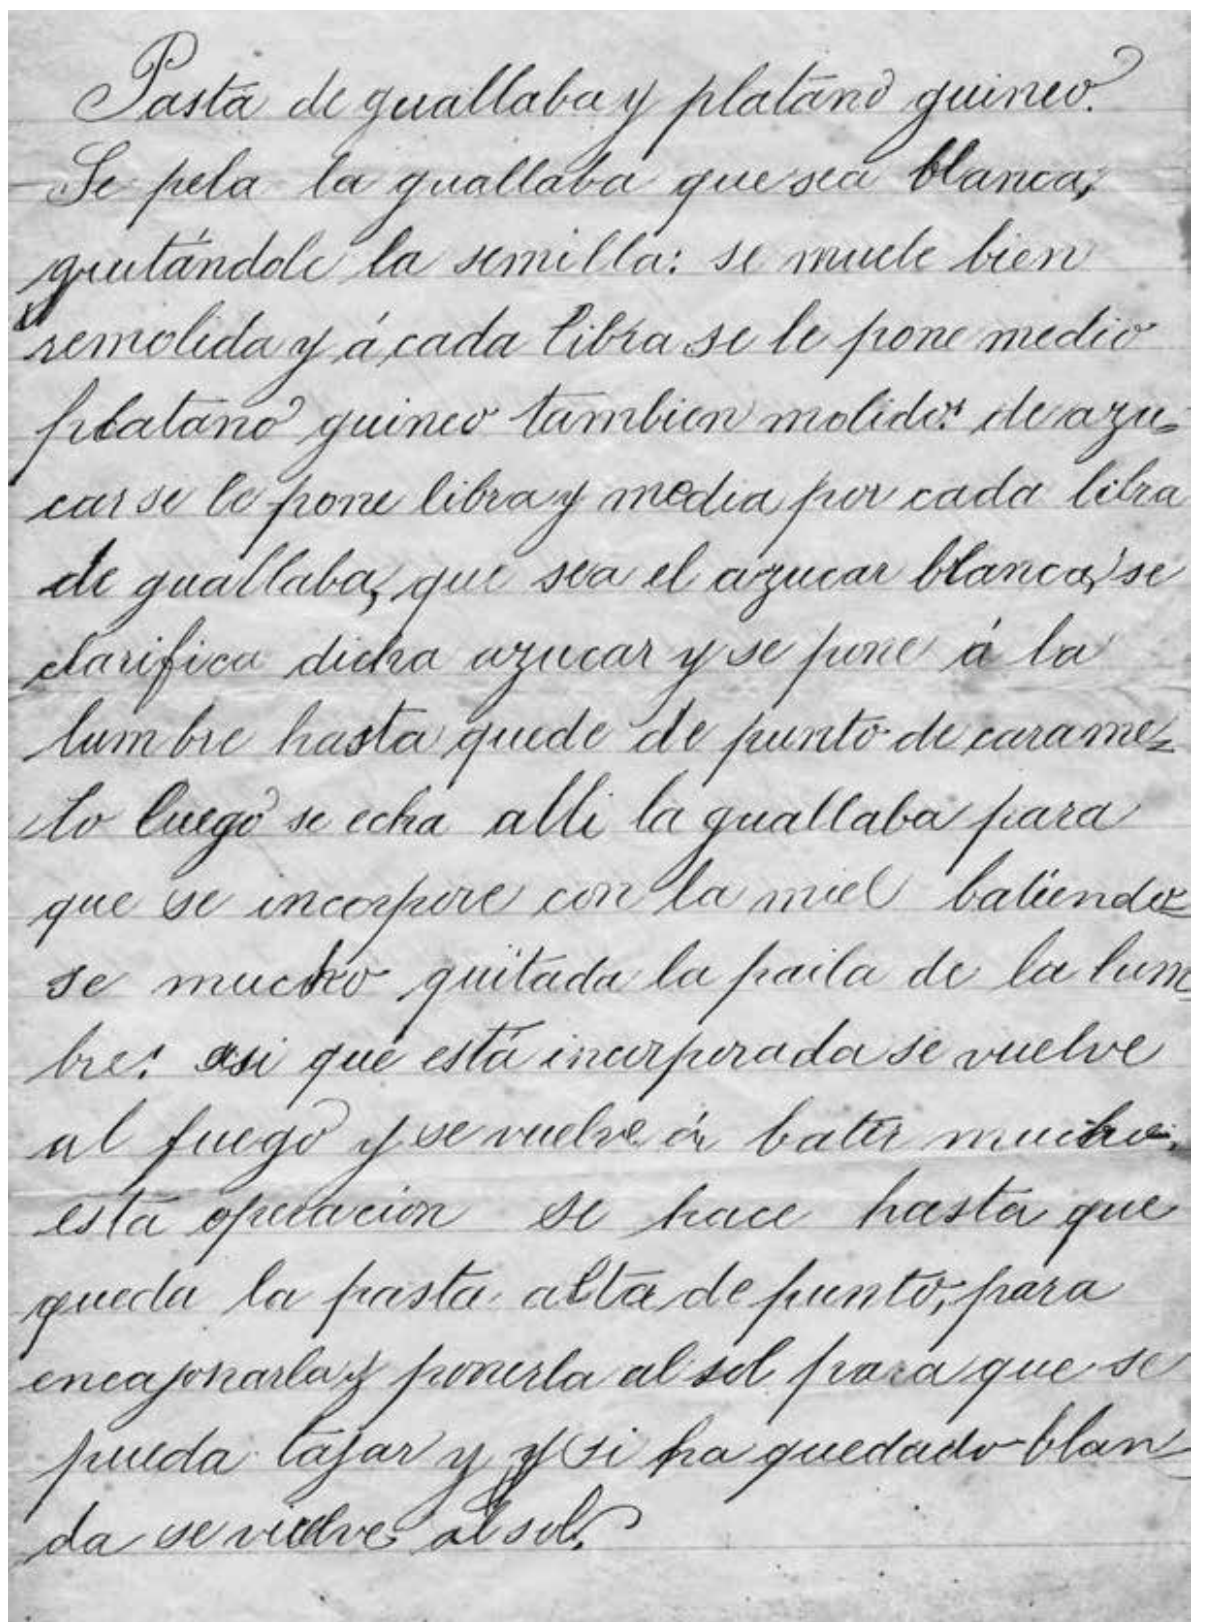 Pasta de guallaba y platano guineo.
Se pela la guallaba que sea blanca,
quitándole la semilla: se muele bien
remolida y á cada libra se le pone medio
platano guineo tambien molido: de azu-
car se le pone libra y media por cada libra
de guallaba, que sea el azucar blanca, se
clarifica dicha azucar y se pone á la
lumbre hasta quede de punto de carame=
lo luego se echa alli la guallaba para
que se incorpore con la miel batiendo=
se mucho quitada la paila de la lum=
bre: asi que está incorporada se vuelve
al fuego y se vuelve á batir mucho,
esta operacion se hace hasta que
queda la pasta alta de punto, para
encajonarla y ponerla al sol para que se
pueda tajar y y si ha quedado blan-
da se vuelve al sol.